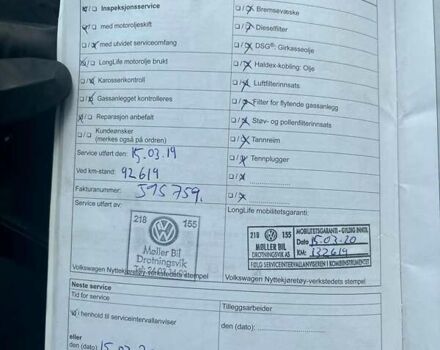 Inspeksjonsservice
Bremsevæske
med motoroljeskift
Dieselfilter
med utvidet serviceomfang
DSG®: Girkasseolje
LongLife motorolje brukt
Haldex-kobling: Olje
Karosserikontroll
Luftfilterinnsats
Gassanlegget kontrolleres
Filter for flytende gassanlegg
Reparasjon anbefalt
Støv- og pollenfilterinnsats
Kundeønsker
(merkes også på ordren)
Tannreim
Tennplugger
Service utført den: 15.03.19
Ved km-stand: 92614
Fakturanummer: 515759.
Service utført av:
LongLife mobilitetsgaranti:
218 155
Møller Bil
Drotningsvik
218 155
MØLLER BIL
DROTNINGSVIK AS
MOBILITETSGARANTI - GYLDIG INNTIL
Dato 15.03.20
KM: 132614
FØLG SERVICEINTERVALLANVISEREN I KOMBIINSTRUMENTET
Volkswagen Nyttekjøretøy-verkstedets stempel
Volkswagen Nyttekjøretøy-verkstedets stempel
Neste service
Tid for service
Tilleggsarbeider
i henhold til serviceintervallanviser
den (dato):
eller
den (dato) 15.03.2